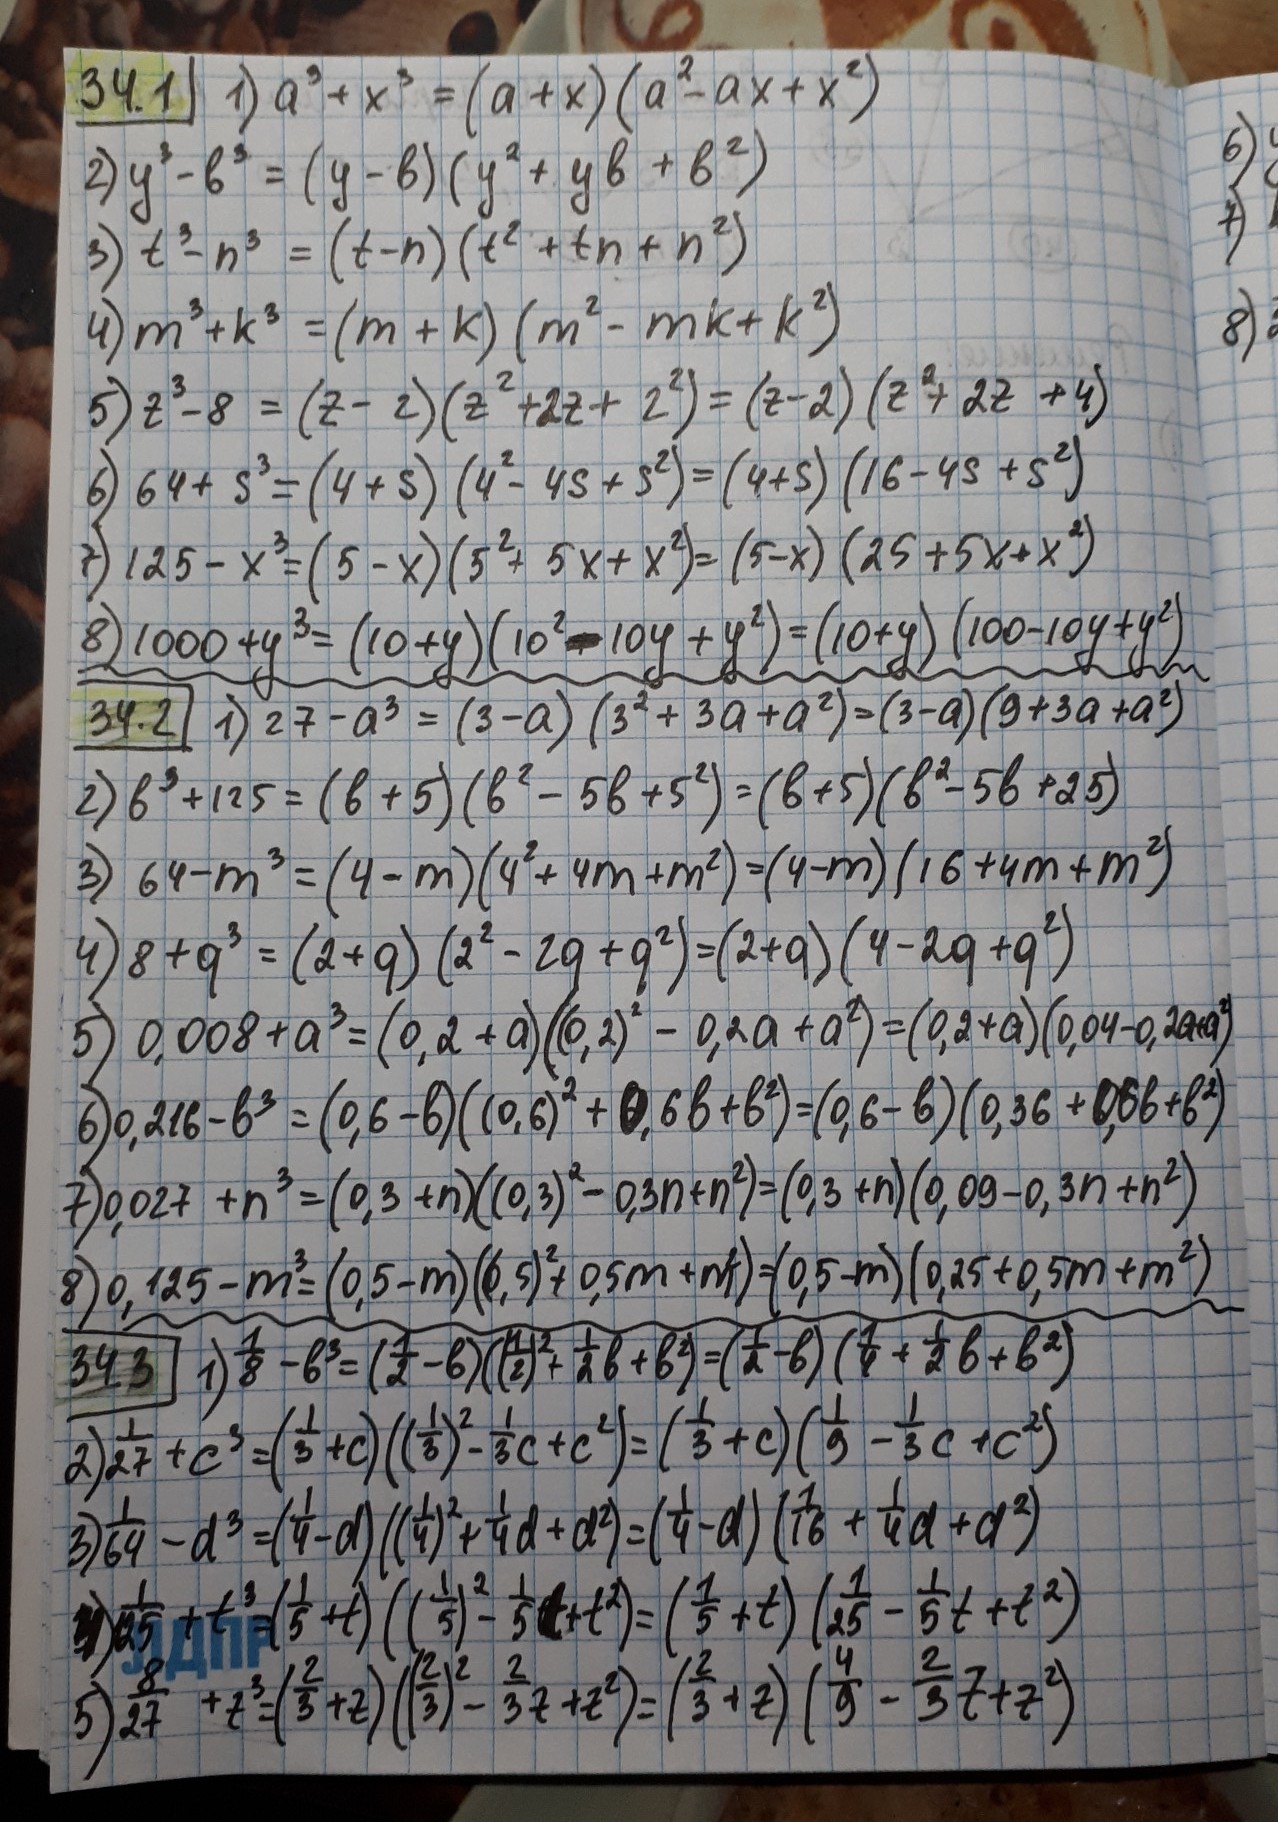 34.1 1) a³ + x³ = (a + x)(a² - ax + x²)
2) y³ - b³ = (y - b)(y² + yb + b²)
3) t³ - n³ = (t - n)(t² + tn + n²)
4) m³ + k³ = (m + k)(m² - mk + k²)
5) z³ - 8 = (z - 2)(z² + 2z + 2²) = (z - 2)(z² + 2z + 4)
6) 64 + s³ = (4 + s)(4² - 4s + s²) = (4 + s)(16 - 4s + s²)
7) 125 - x³ = (5 - x)(5² + 5x + x²) = (5 - x)(25 + 5x + x²)
8) 1000 + y³ = (10 + y)(10² - 10y + y²) = (10 + y)(100 - 10y + y²)
34.2 1) 27 - a³ = (3 - a)(3² + 3a + a²) = (3 - a)(9 + 3a + a²)
2) b³ + 125 = (b + 5)(b² - 5b + 5²) = (b + 5)(b² - 5b + 25)
3) 64 - m³ = (4 - m)(4² + 4m + m²) = (4 - m)(16 + 4m + m²)
4) 8 + q³ = (2 + q)(2² - 2q + q²) = (2 + q)(4 - 2q + q²)
5) 0,008 + a³ = (0,2 + a)((0,2)² - 0,2a + a²) = (0,2 + a)(0,04 - 0,2a + a²)
6) 0,216 - b³ = (0,6 - b)((0,6)² + 0,6b + b²) = (0,6 - b)(0,36 + 0,6b + b²)
7) 0,027 + n³ = (0,3 + n)((0,3)² - 0,3n + n²) = (0,3 + n)(0,09 - 0,3n + n²)
8) 0,125 - m³ = (0,5 - m)((0,5)² + 0,5m + m²) = (0,5 - m)(0,25 + 0,5m + m²)
34.3 1) 1/8 - b³ = (1/2 - b)((1/2)² + 1/2 b + b²) = (1/2 - b)(1/4 + 1/2 b + b²)
2) 1/27 + c³ = (1/3 + c)((1/3)² - 1/3 c + c²) = (1/3 + c)(1/9 - 1/3 c + c²)
3) 1/64 - d³ = (1/4 - d)((1/4)² + 1/4 d + d²) = (1/4 - d)(1/16 + 1/4 d + d²)
4) 1/125 + t³ = (1/5 + t)((1/5)² - 1/5 t + t²) = (1/5 + t)(1/25 - 1/5 t + t²)
ЛДПР
5) 8/27 + z³ = (2/3 + z)((2/3)² - 2/3 z + z²) = (2/3 + z)(4/9 - 2/3 z + z²)
6)
7)
8)